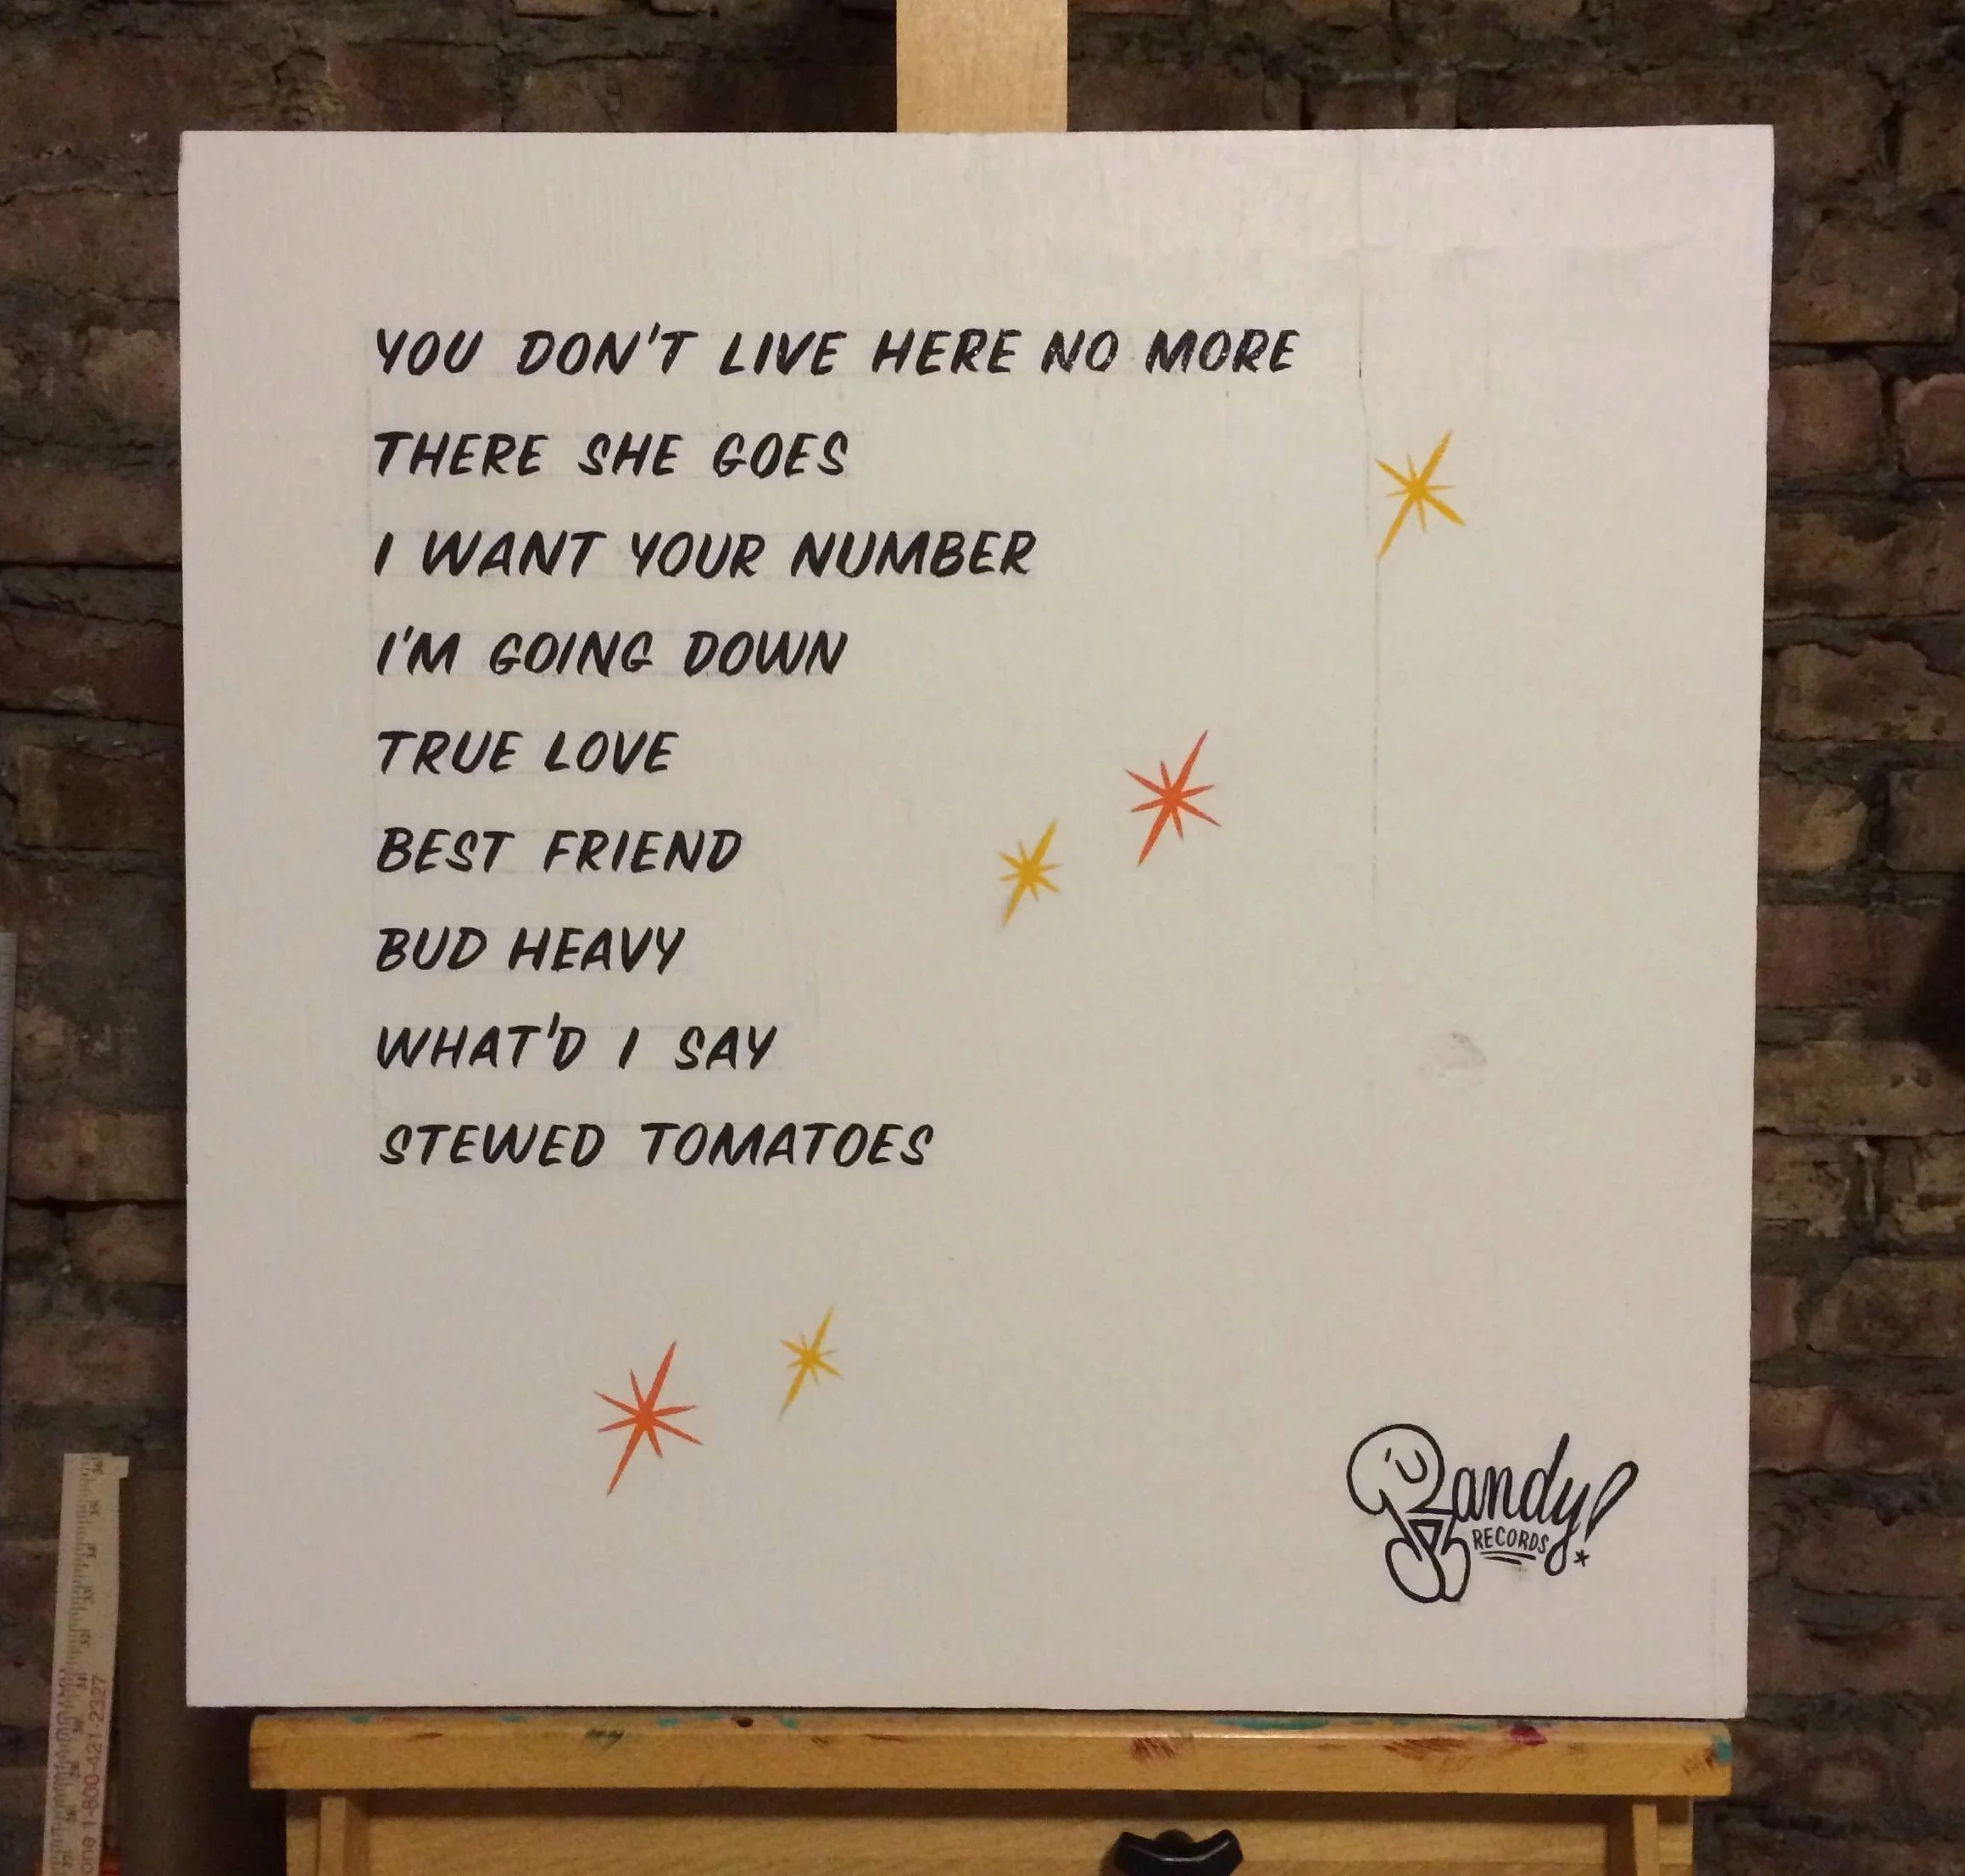 YOU DON'T LIVE HERE NO MORE
THERE SHE GOES
I WANT YOUR NUMBER
I'M GOING DOWN
TRUE LOVE
BEST FRIEND
BUD HEAVY
WHAT'D I SAY
STEWED TOMATOES
Randy!
RECORDS